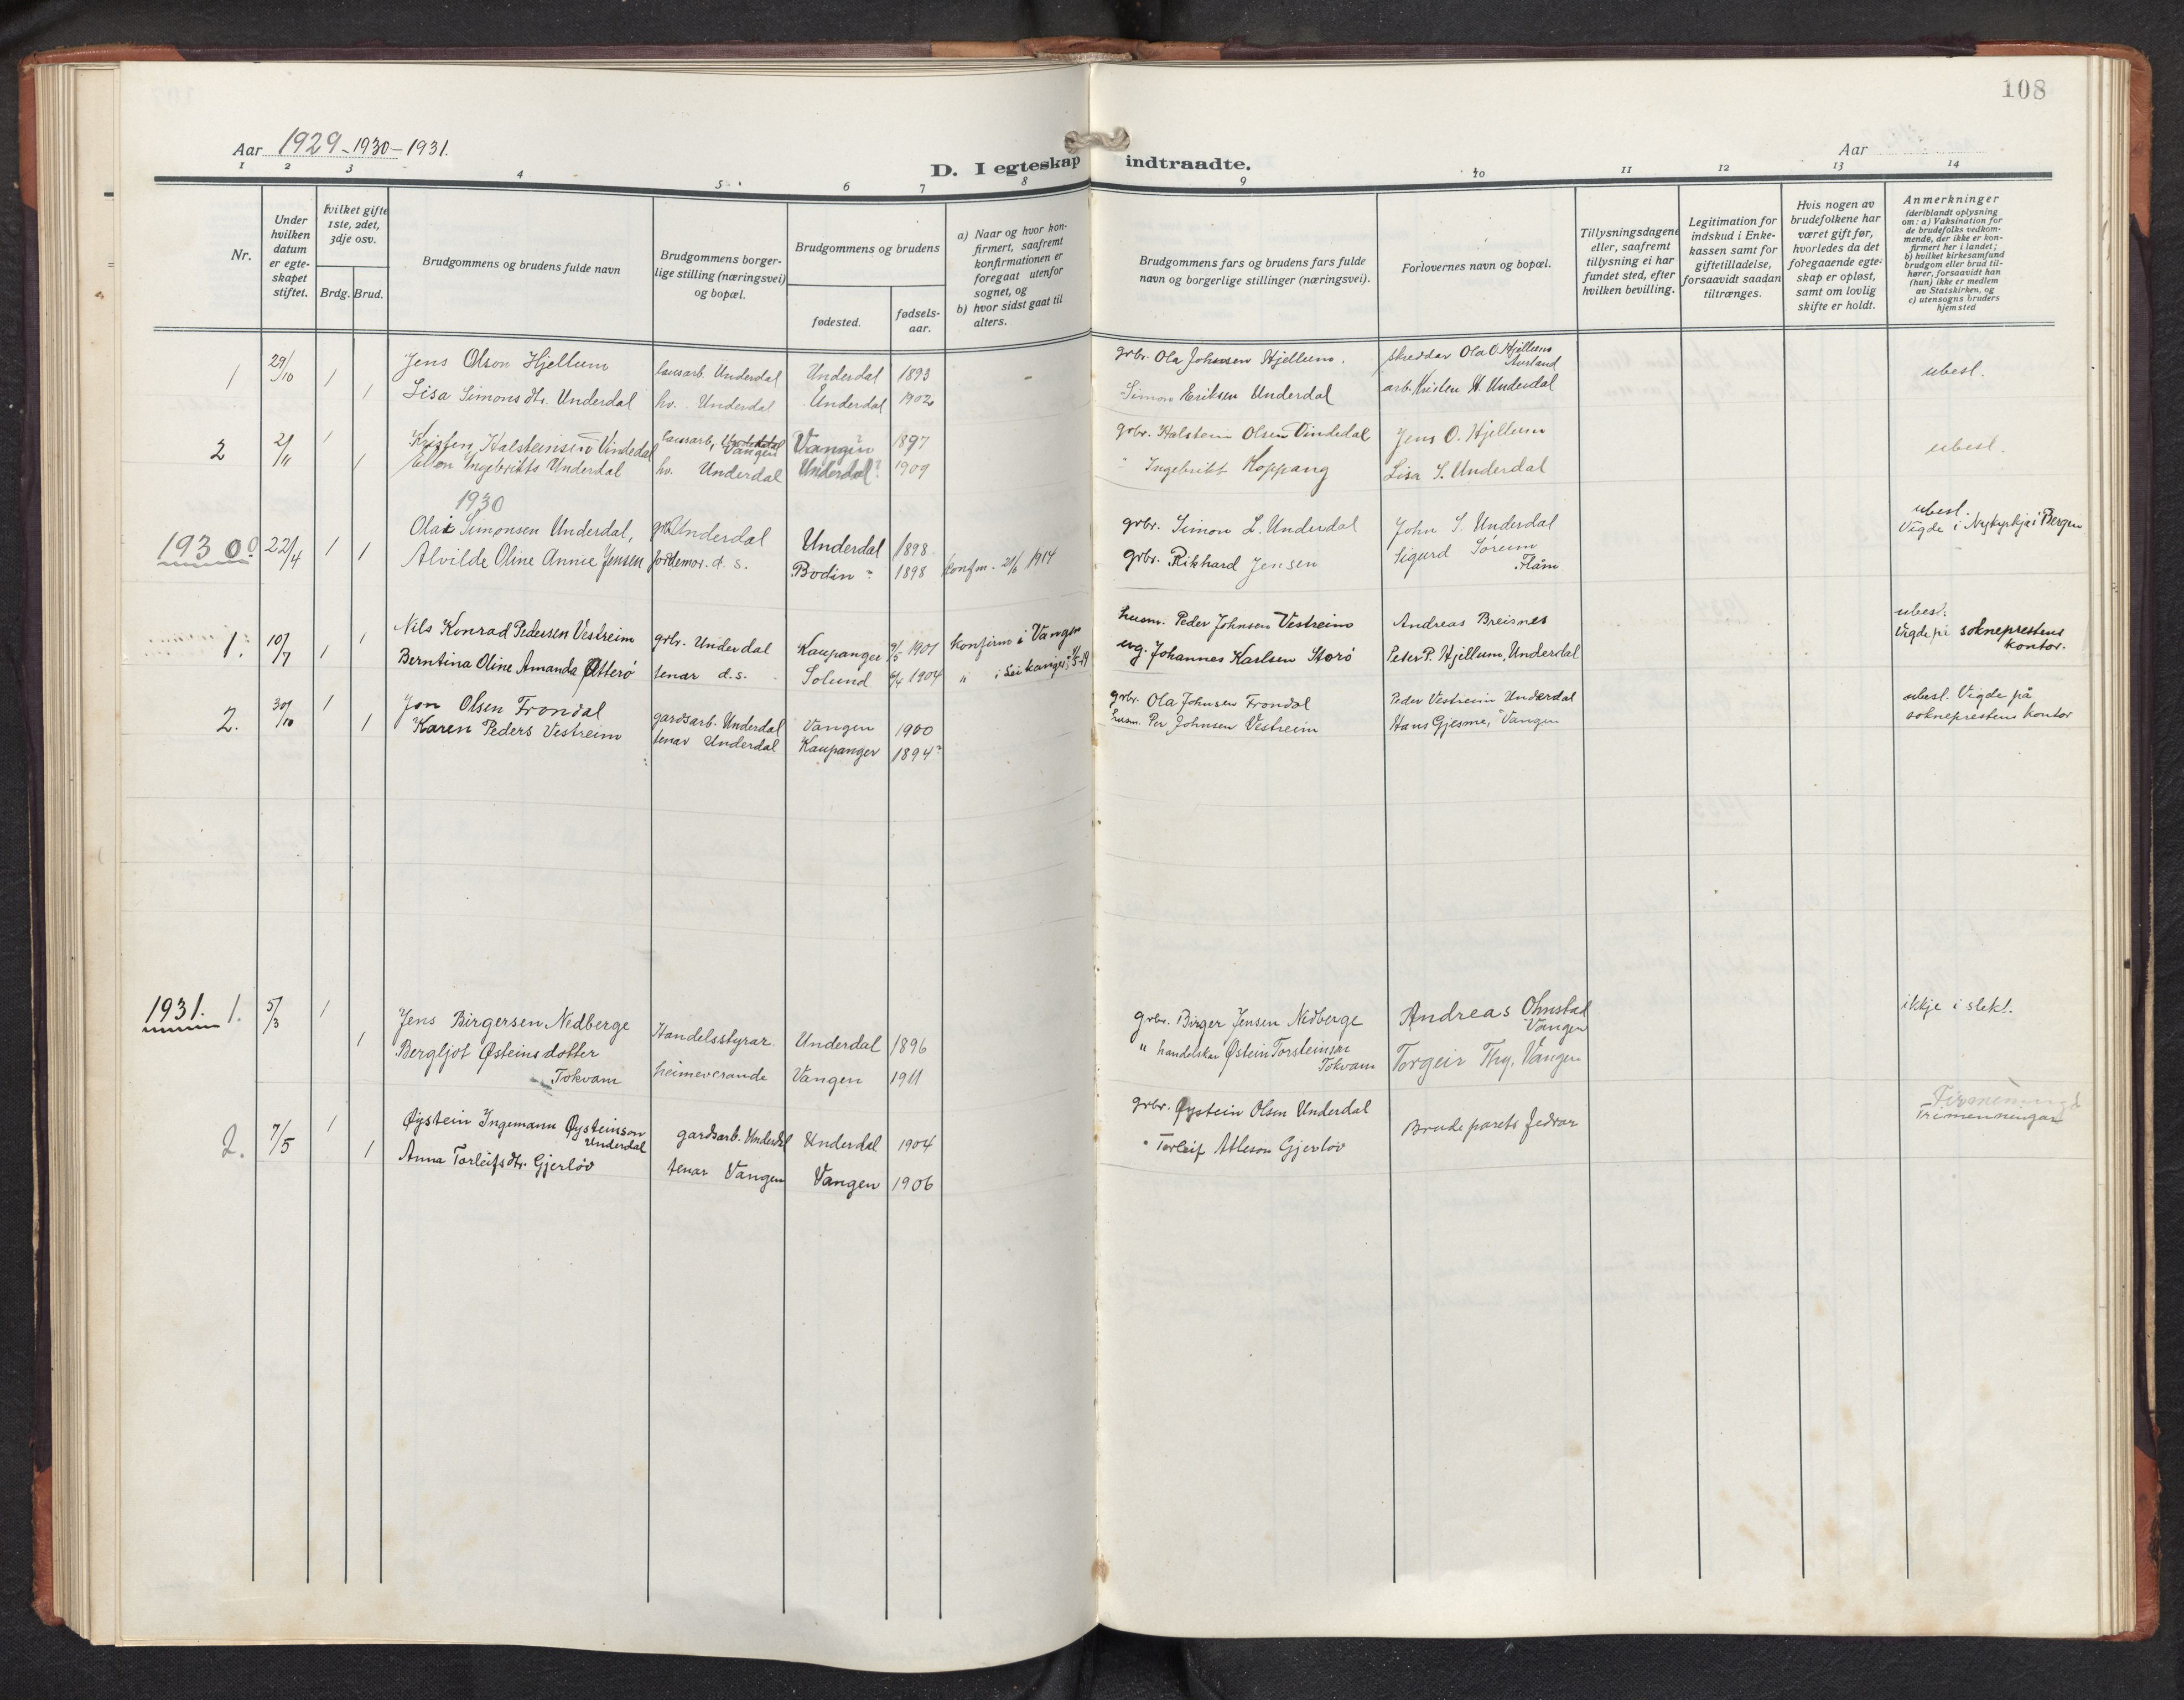 108
Aar 1929-1930-1931.
D. I egteskap indtraadte.
Aar
1 2 3 4 5 6 7 8 9 10 11 12 13 14
Nr.
Under hvilken datum er egte-skapet stiftet.
hvilket gifte 1ste, 2det, 3dje osv.
Brdg. Brud.
Brudgommens og brudens fulde navn
Brudgommens borger-lige stilling (næringsvei) og bopæl.
Brudgommens og brudens
fødested.
fødsels-aar.
a) Naar og hvor kon-firmert, saafremt konfirmationen er foregaat utenfor sognet, og
b) hvor sidst gaat til alters.
Brudgommens fars og brudens fars fulde navn og borgerlige stillinger (næringsvei).
Forlovernes navn og bopæl.
Tillysningsdagene eller, saafremt tillysning ei har fundet sted, efter hvilken bevilling.
Legitimation for indskud i Enke-kassen samt for giftetilladelse, forsaavidt saadan tiltrænges.
Hvis nogen av brudefolkene har været gift før, hvorledes da det foregaaende egte-skap er opløst, samt om lovlig skifte er holdt.
Anmerkninger
(deriblandt oplysning om: a) Vaksination for de brudefolks vedkom-mende, der ikke er kon-firmert her i landet; b) hvilket kirkesamfund brudgom eller brud til-hører, forsaavidt han (hun) ikke er medlem av Statskirken, og c) utensogns bruders hjemsted
1 29/10 1 Jens Olson Hjellum lausarb. Underdal Underdal 1893 - grbr. Ola Johnsen Hjellum. skreddar Ola O. Hjellum Aurland ubesl.
1 Lisa Simonsdtr. Underdal hv. Underdal Underdal 1902 Simon Eriksen Underdal arb. Kristen H. Underdal
2 2/11 1 Kristen Halsteinsen Vindedal lausarb, Underdal Vangen Vangen 1897 grbr. Halstein Olsen Vindedal Jens O. Hjellum ubesl.
1 Ellen Ingebrikts Underdal hv. Underdal Underdal? 1909 " Ingebrikt Hoppang Lisa S. Underdal
1930
1930 22/4 1 Olai Simonsen Underdal, grbr Underdal Underdal 1898 grbr. Simon L. Underdal John S. Underdal ubesl. Vigde i Nykyrkja i Bergen
1 Alvilde Oline Annie Jensen jordemor. d. s. Bodin 1898 konfm. 21/6 1914 grbr. Rikhard Jensen Sigurd Sørum Flåm
1. 10/7 1 1 Nils Konrad Pedersen Vestreim grbr. Underdal Kaupanger 9/5 1901 konfirm i Vangen husm. Peder Johnsen Vestreim Andreas Breisnes ubesl. Vigde på sokneprestens kontor.
Berntina Oline Amanda Otterø tenar d.s. Solund 6/4 1904 " i Leikanger ug. Johannes Karlsen Storø Peter P. Hjellum, Underdal
2. 30/10 1 Jon Olsen Frondal gardsarb. Underdal Vangen 1900 grbr. Ola Johnsen Frondal Peder Vestreim Underdal ubesl. Vigde på sokneprestens kontor
1 Karen Peders Vestreim tenar Underdal Kaupanger 1894? husm. Per Johnsen Vestreim Hans Gjesme, Vangen
1931. 1. 5/3 1 Jens Birgersen Nedberge Handelsstyrar. Underdal 1896 grbr. Birger Jensen Nedberge Andreas Ohnstad Vangen ikkje i slekt.
1 Bergljot Østeinsdotter Tokvam heimeverande Vangen 1911 " handelskar Østein Torsteinson Tokvam Torgeir Thy, Vangen
2. 7/5 1 Øystein Ingemann Øysteinson Underdal gardsarb. Underdal Underdal 1904 grbr. Øystein Olsen Underdal Brudeparets fedrar Tremenningar
1 Anna Torleifsdtr. Gjerløv tenar Vangen Vangen 1906 " Torleif Atleson Gjerløv